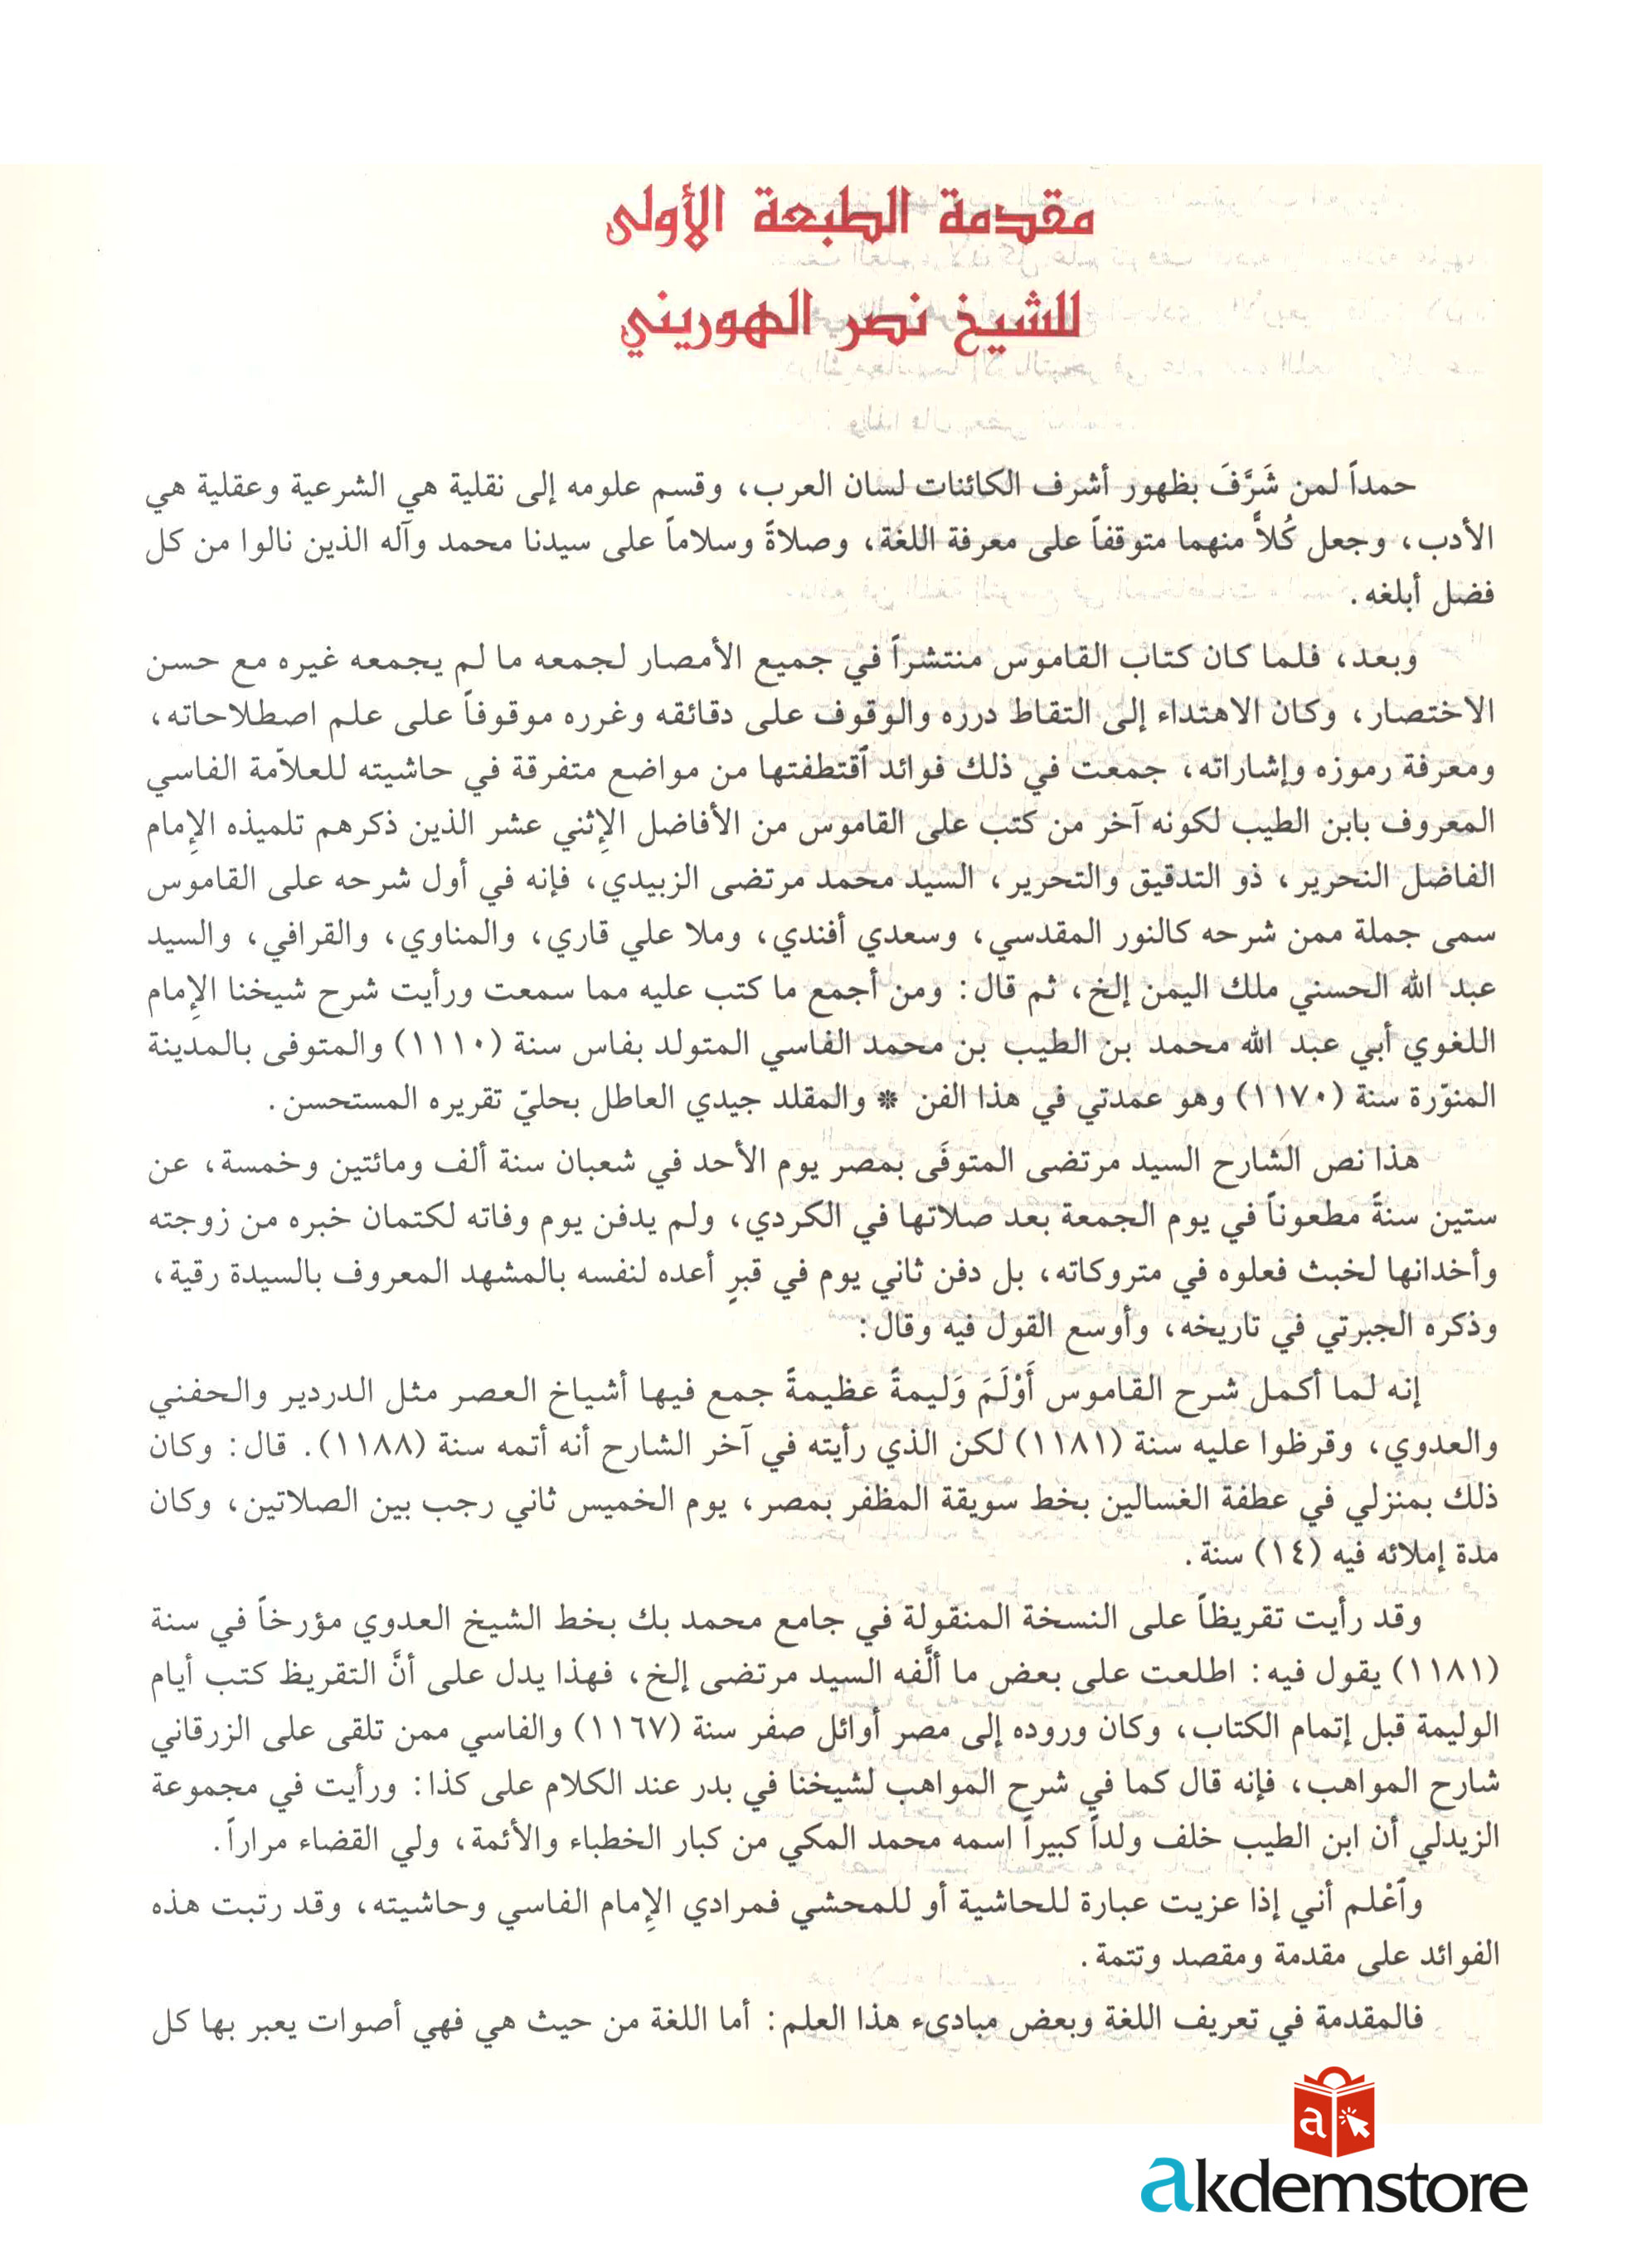 مقدمة الطبعة الأولى
للشيخ نصر الهوريني
حمداً لمن شَرَّفَ بظهور أشرف الكائنات لسان العرب، وقسم علومه إلى نقلية هي الشرعية وعقلية هي
الأدب، وجعل كُلاًّ منهما متوقفاً على معرفة اللغة، وصلاةً وسلاماً على سيدنا محمد وآله الذين نالوا من كل
فضل أبلغه.
وبعد، فلما كان كتاب القاموس منتشراً في جميع الأمصار لجمعه ما لم يجمعه غيره مع حسن
الاختصار، وكان الاهتداء إلى التقاط درره والوقوف على دقائقه وغرره موقوفاً على علم اصطلاحاته،
ومعرفة رموزه وإشاراته، جمعت في ذلك فوائد ٱقتطفتها من مواضع متفرقة في حاشيته للعلاّمة الفاسي
المعروف بابن الطيب لكونه آخر من كتب على القاموس من الأفاضل الإِثني عشر الذين ذكرهم تلميذه الإِمام
الفاضل النحرير، ذو التدقيق والتحرير، السيد محمد مرتضى الزبيدي، فإنه في أول شرحه على القاموس
سمى جملة ممن شرحه كالنور المقدسي، وسعدي أفندي، وملا علي قاري، والمناوي، والقرافي، والسيد
عبد الله الحسني ملك اليمن إلخ، ثم قال: ومن أجمع ما كتب عليه مما سمعت ورأيت شرح شيخنا الإِمام
اللغوي أبي عبد الله محمد بن الطيب بن محمد الفاسي المتولد بفاس سنة (١١١٠) والمتوفى بالمدينة
المنوّرة سنة (١١٧٠) وهو عمدتي في هذا الفن * والمقلد جيدي العاطل بحليّ تقريره المستحسن.
هذا نص الشارح السيد مرتضى المتوفَى بمصر يوم الأحد في شعبان سنة ألف ومائتين وخمسة، عن
ستين سنةً مطعوناً في يوم الجمعة بعد صلاتها في الكردي، ولم يدفن يوم وفاته لكتمان خبره من زوجته
وأخدانها لخبث فعلوه في متروكاته، بل دفن ثاني يوم في قبرٍ أعده لنفسه بالمشهد المعروف بالسيدة رقية،
وذكره الجبرتي في تاريخه، وأوسع القول فيه وقال:
إنه لما أكمل شرح القاموس أَوْلَمَ وَليمةً عظيمةً جمع فيها أشياخ العصر مثل الدردير والحفني
والعدوي، وقرظوا عليه سنة (١١٨١) لكن الذي رأيته في آخر الشارح أنه أتمه سنة (١١٨٨). قال: وكان
ذلك بمنزلي في عطفة الغسالين بخط سويقة المظفر بمصر، يوم الخميس ثاني رجب بين الصلاتين، وكان
مدة إملائه فيه (١٤) سنة.
وقد رأيت تقريظاً على النسخة المنقولة في جامع محمد بك بخط الشيخ العدوي مؤرخاً في سنة
(١١٨١) يقول فيه: اطلعت على بعض ما ألَّفه السيد مرتضى إلخ، فهذا يدل على أنَّ التقريظ كتب أيام
الوليمة قبل إتمام الكتاب، وكان وروده إلى مصر أوائل صفر سنة (١١٦٧) والفاسي ممن تلقى على الزرقاني
شارح المواهب، فإنه قال كما في شرح المواهب لشيخنا في بدر عند الكلام على كذا: ورأيت في مجموعة
الزيدلي أن ابن الطيب خلف ولداً كبيراً اسمه محمد المكي من كبار الخطباء والأئمة، ولي القضاء مراراً.
وٱعْلم أني إذا عزيت عبارة للحاشية أو للمحشي فمرادي الإِمام الفاسي وحاشيته، وقد رتبت هذه
الفوائد على مقدمة ومقصد وتتمة.
فالمقدمة في تعريف اللغة وبعض مبادىء هذا العلم: أما اللغة من حيث هي فهي أصوات يعبر بها كل
a
akdemstore